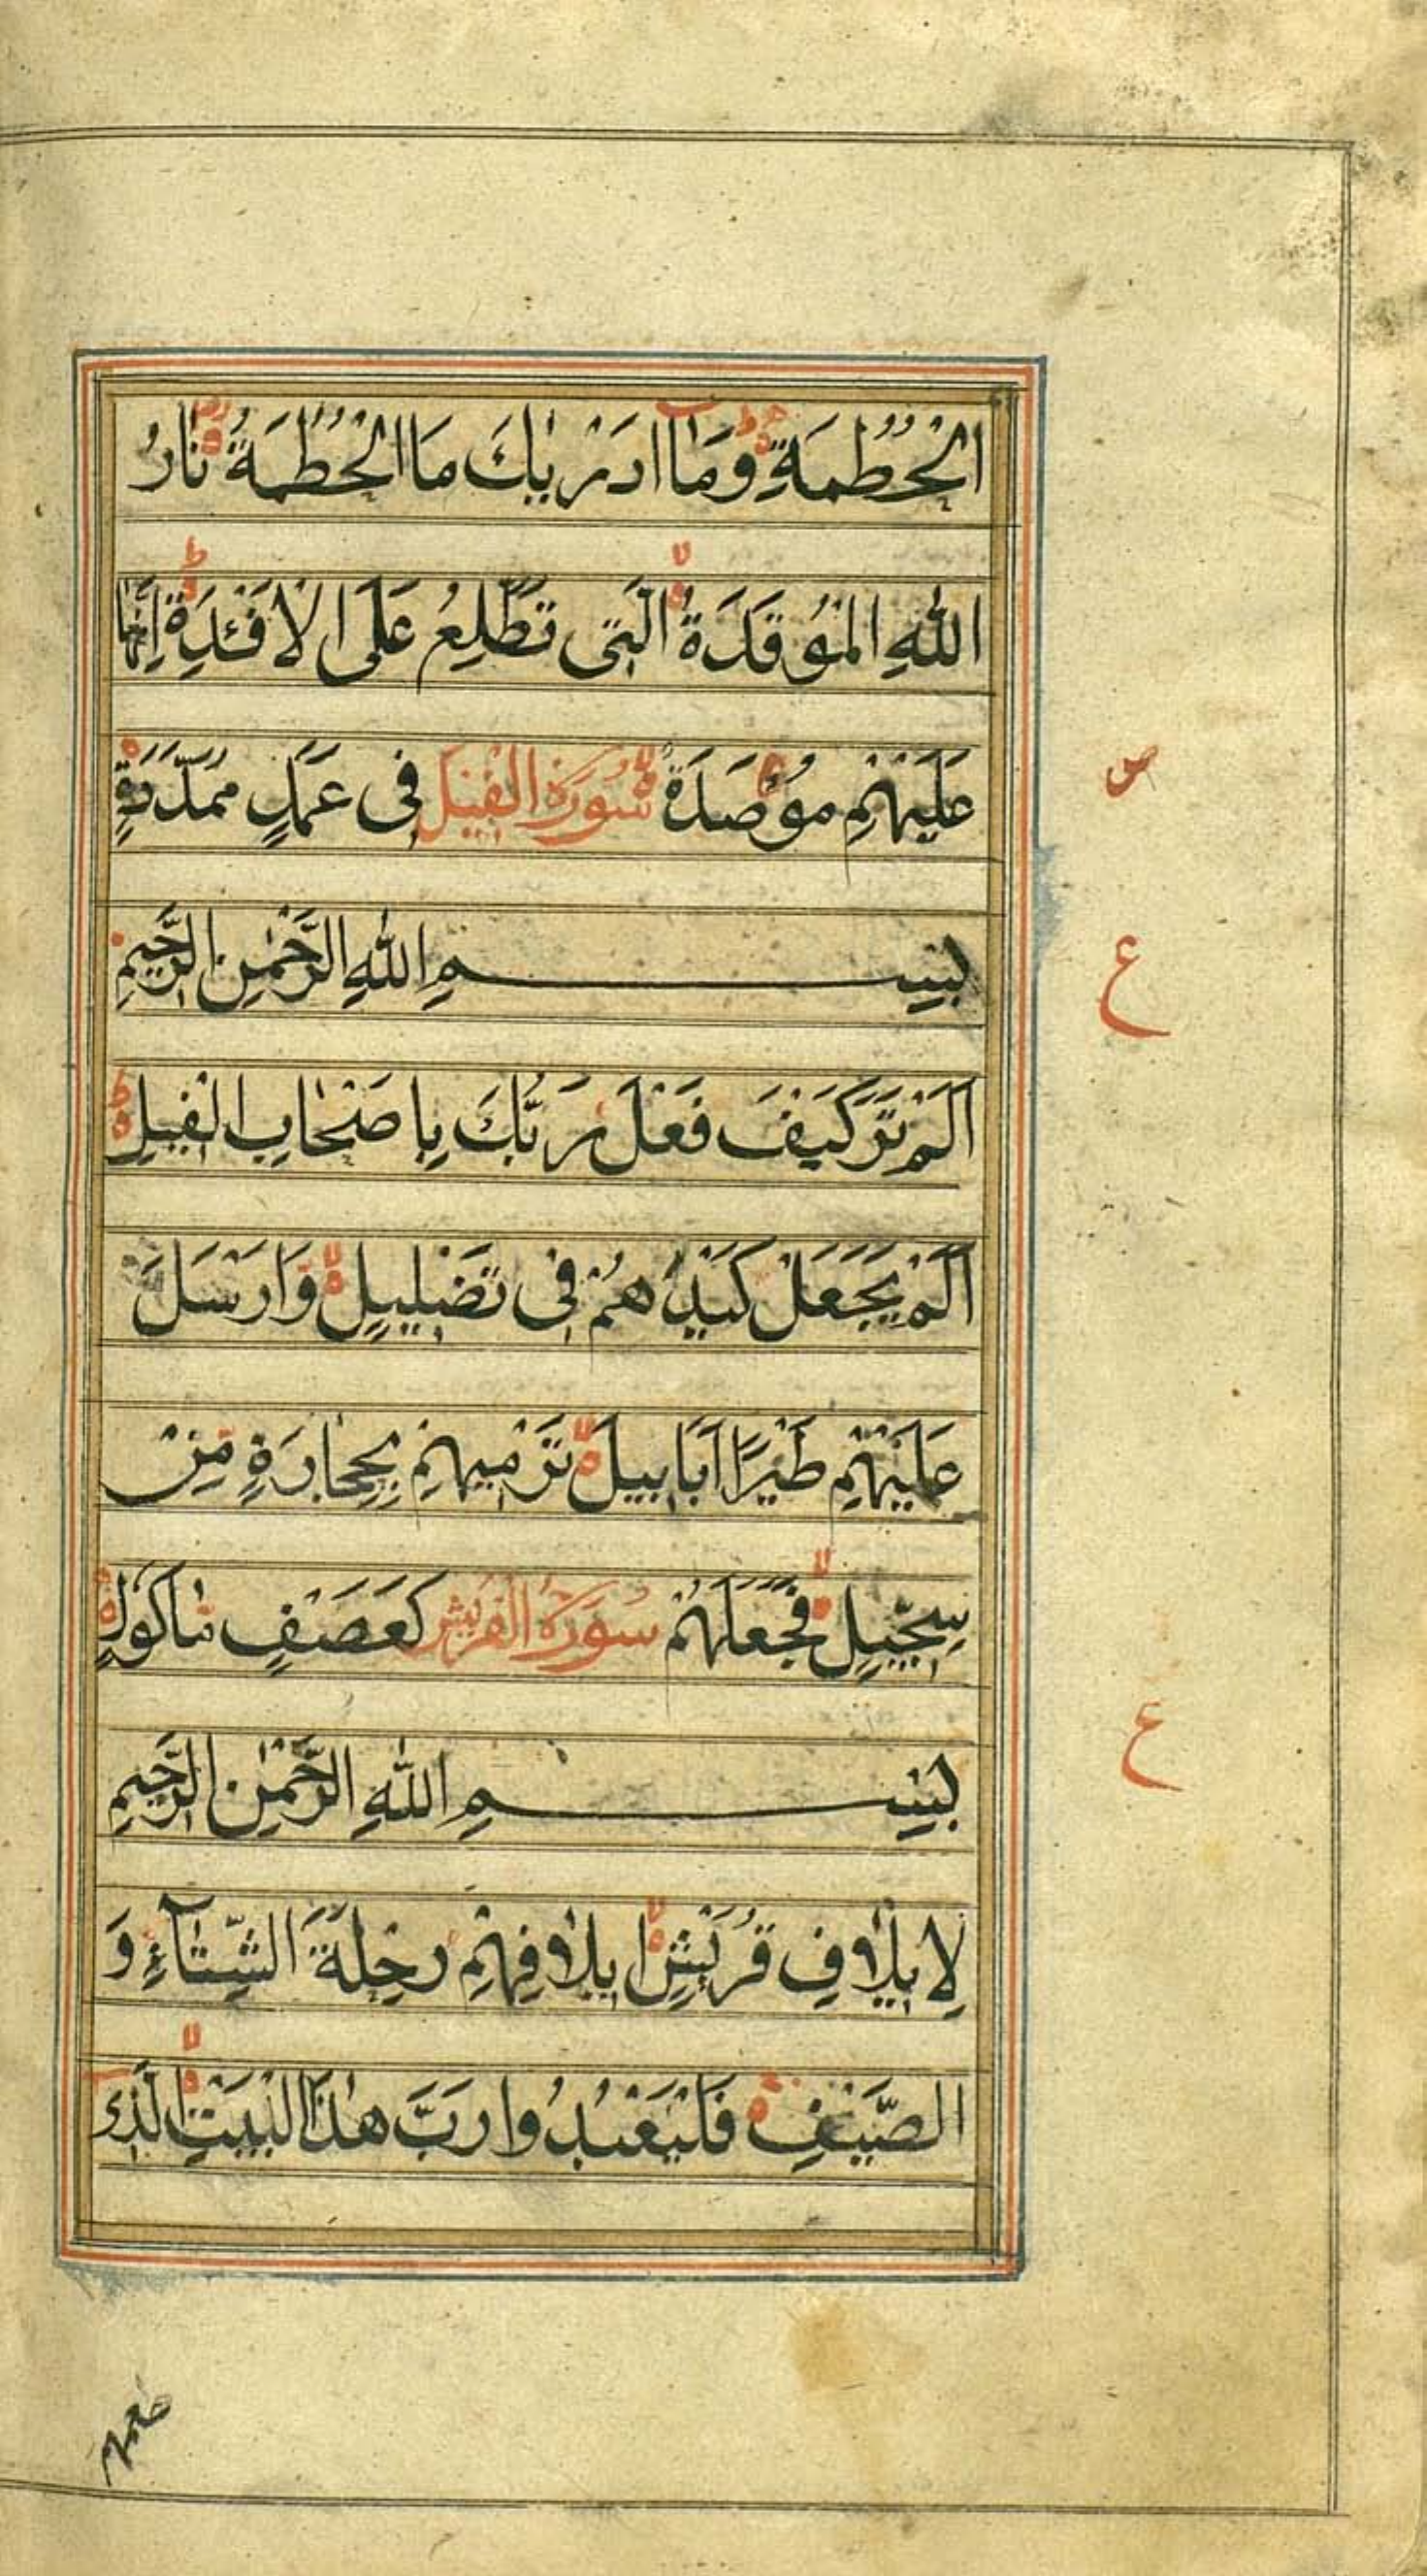 الْحُطَمَةِ وَمَا اَدْرٰىكَ مَا الْحُطَمَةُ نَارُ
اللّٰهِ الْمُوْقَدَةُ الَّتِى تَطَّلِعُ عَلَى الْاَفْئِدَةِ اِنَّهَا
عَلَيْهِمْ مُؤْصَدَةٌ سُورَةُ الْفِيْل فِى عَمَدٍ مُمَدَّدَةٍ
ص
بِسْمِ اللّٰهِ الرَّحْمٰنِ الرَّحِيمِ
ع
اَلَمْ تَرَ كَيْفَ فَعَلَ رَبُّكَ بِاَصْحَابِ الْفِيلِ
اَلَمْ يَجْعَلْ كَيْدَهُمْ فِى تَضْلِيلٍ وَاَرْسَلَ
عَلَيْهِمْ طَيْرًا اَبَابِيلَ تَرْمِيهِمْ بِحِجَارَةٍ مِنْ
سِجِّيلٍ فَجَعَلَهُمْ سُورَةُ الْقُرَيْش كَعَصْفٍ مَاْكُولٍ
ع
بِسْمِ اللّٰهِ الرَّحْمٰنِ الرَّحِيمِ
لِاِيلَافِ قُرَيْشٍ اِيلَافِهِمْ رِحْلَةَ الشِّتَآءِ وَ
الصَّيْفِ فَلْيَعْبُدُوا رَبَّ هٰذَا الْبَيْتِ الَّذِى